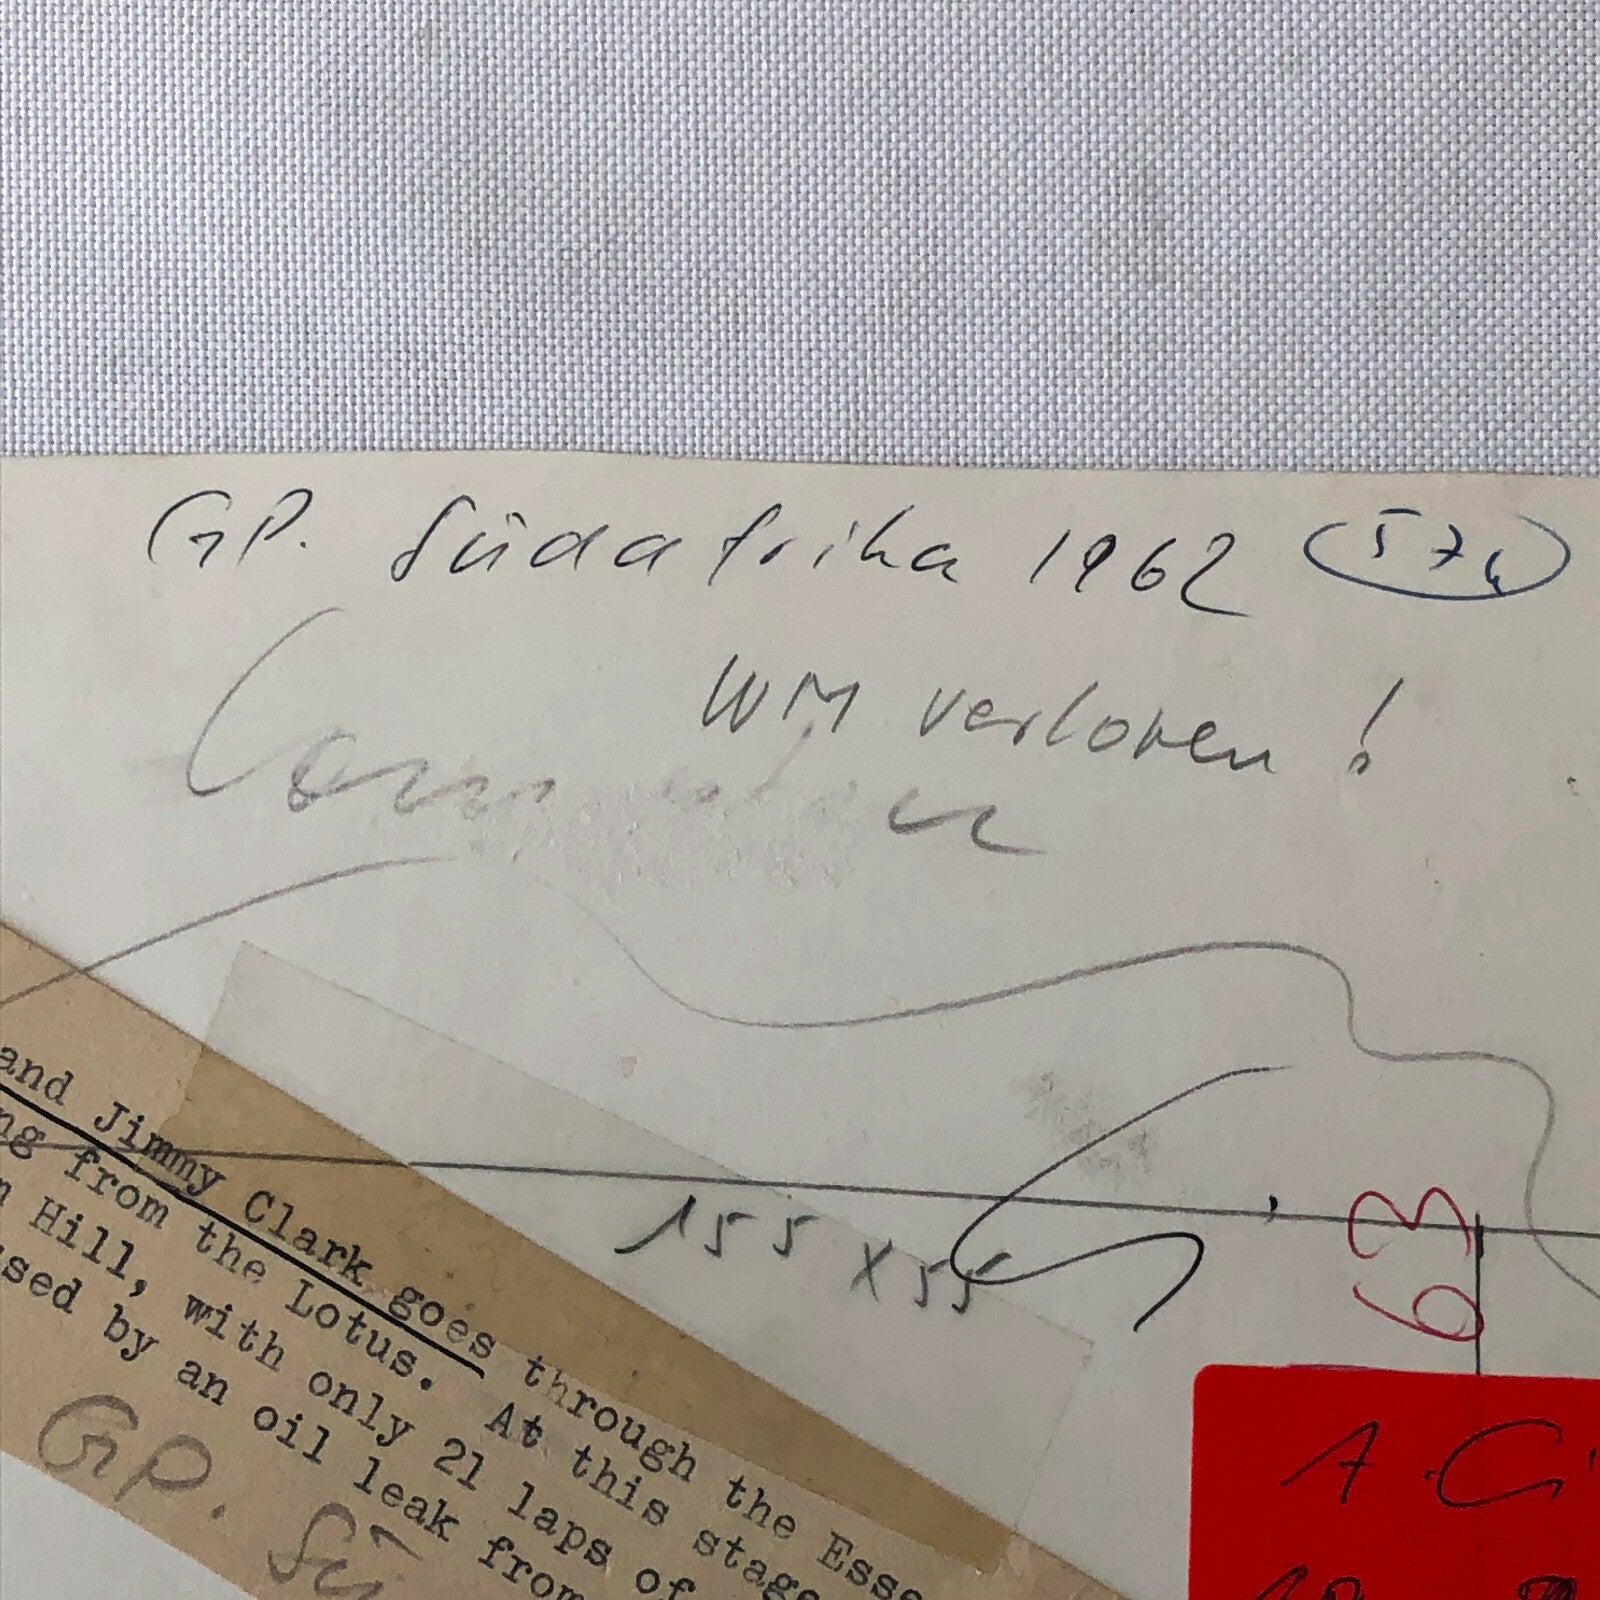 GP. Südafrika 1962
WM verloren!
and Jimmy Clark goes through the Esse
ng from the Lotus. At this stage
Hill, with only 21 laps of
sed by an oil leak from
GP. Sü
155 x 55
63
A.C.